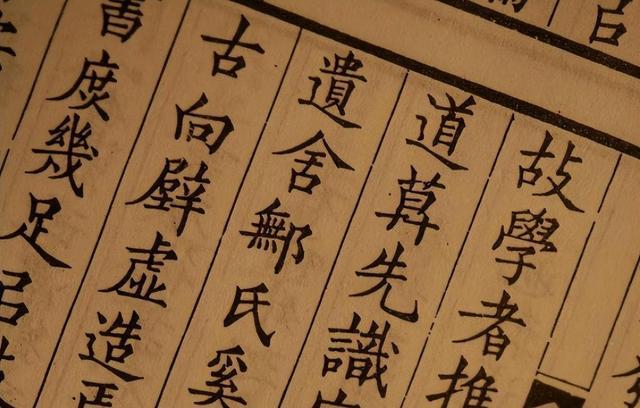 故學者推
道先識
遺舍鄦氏奚
古向壁虛造
書庶幾足㠯